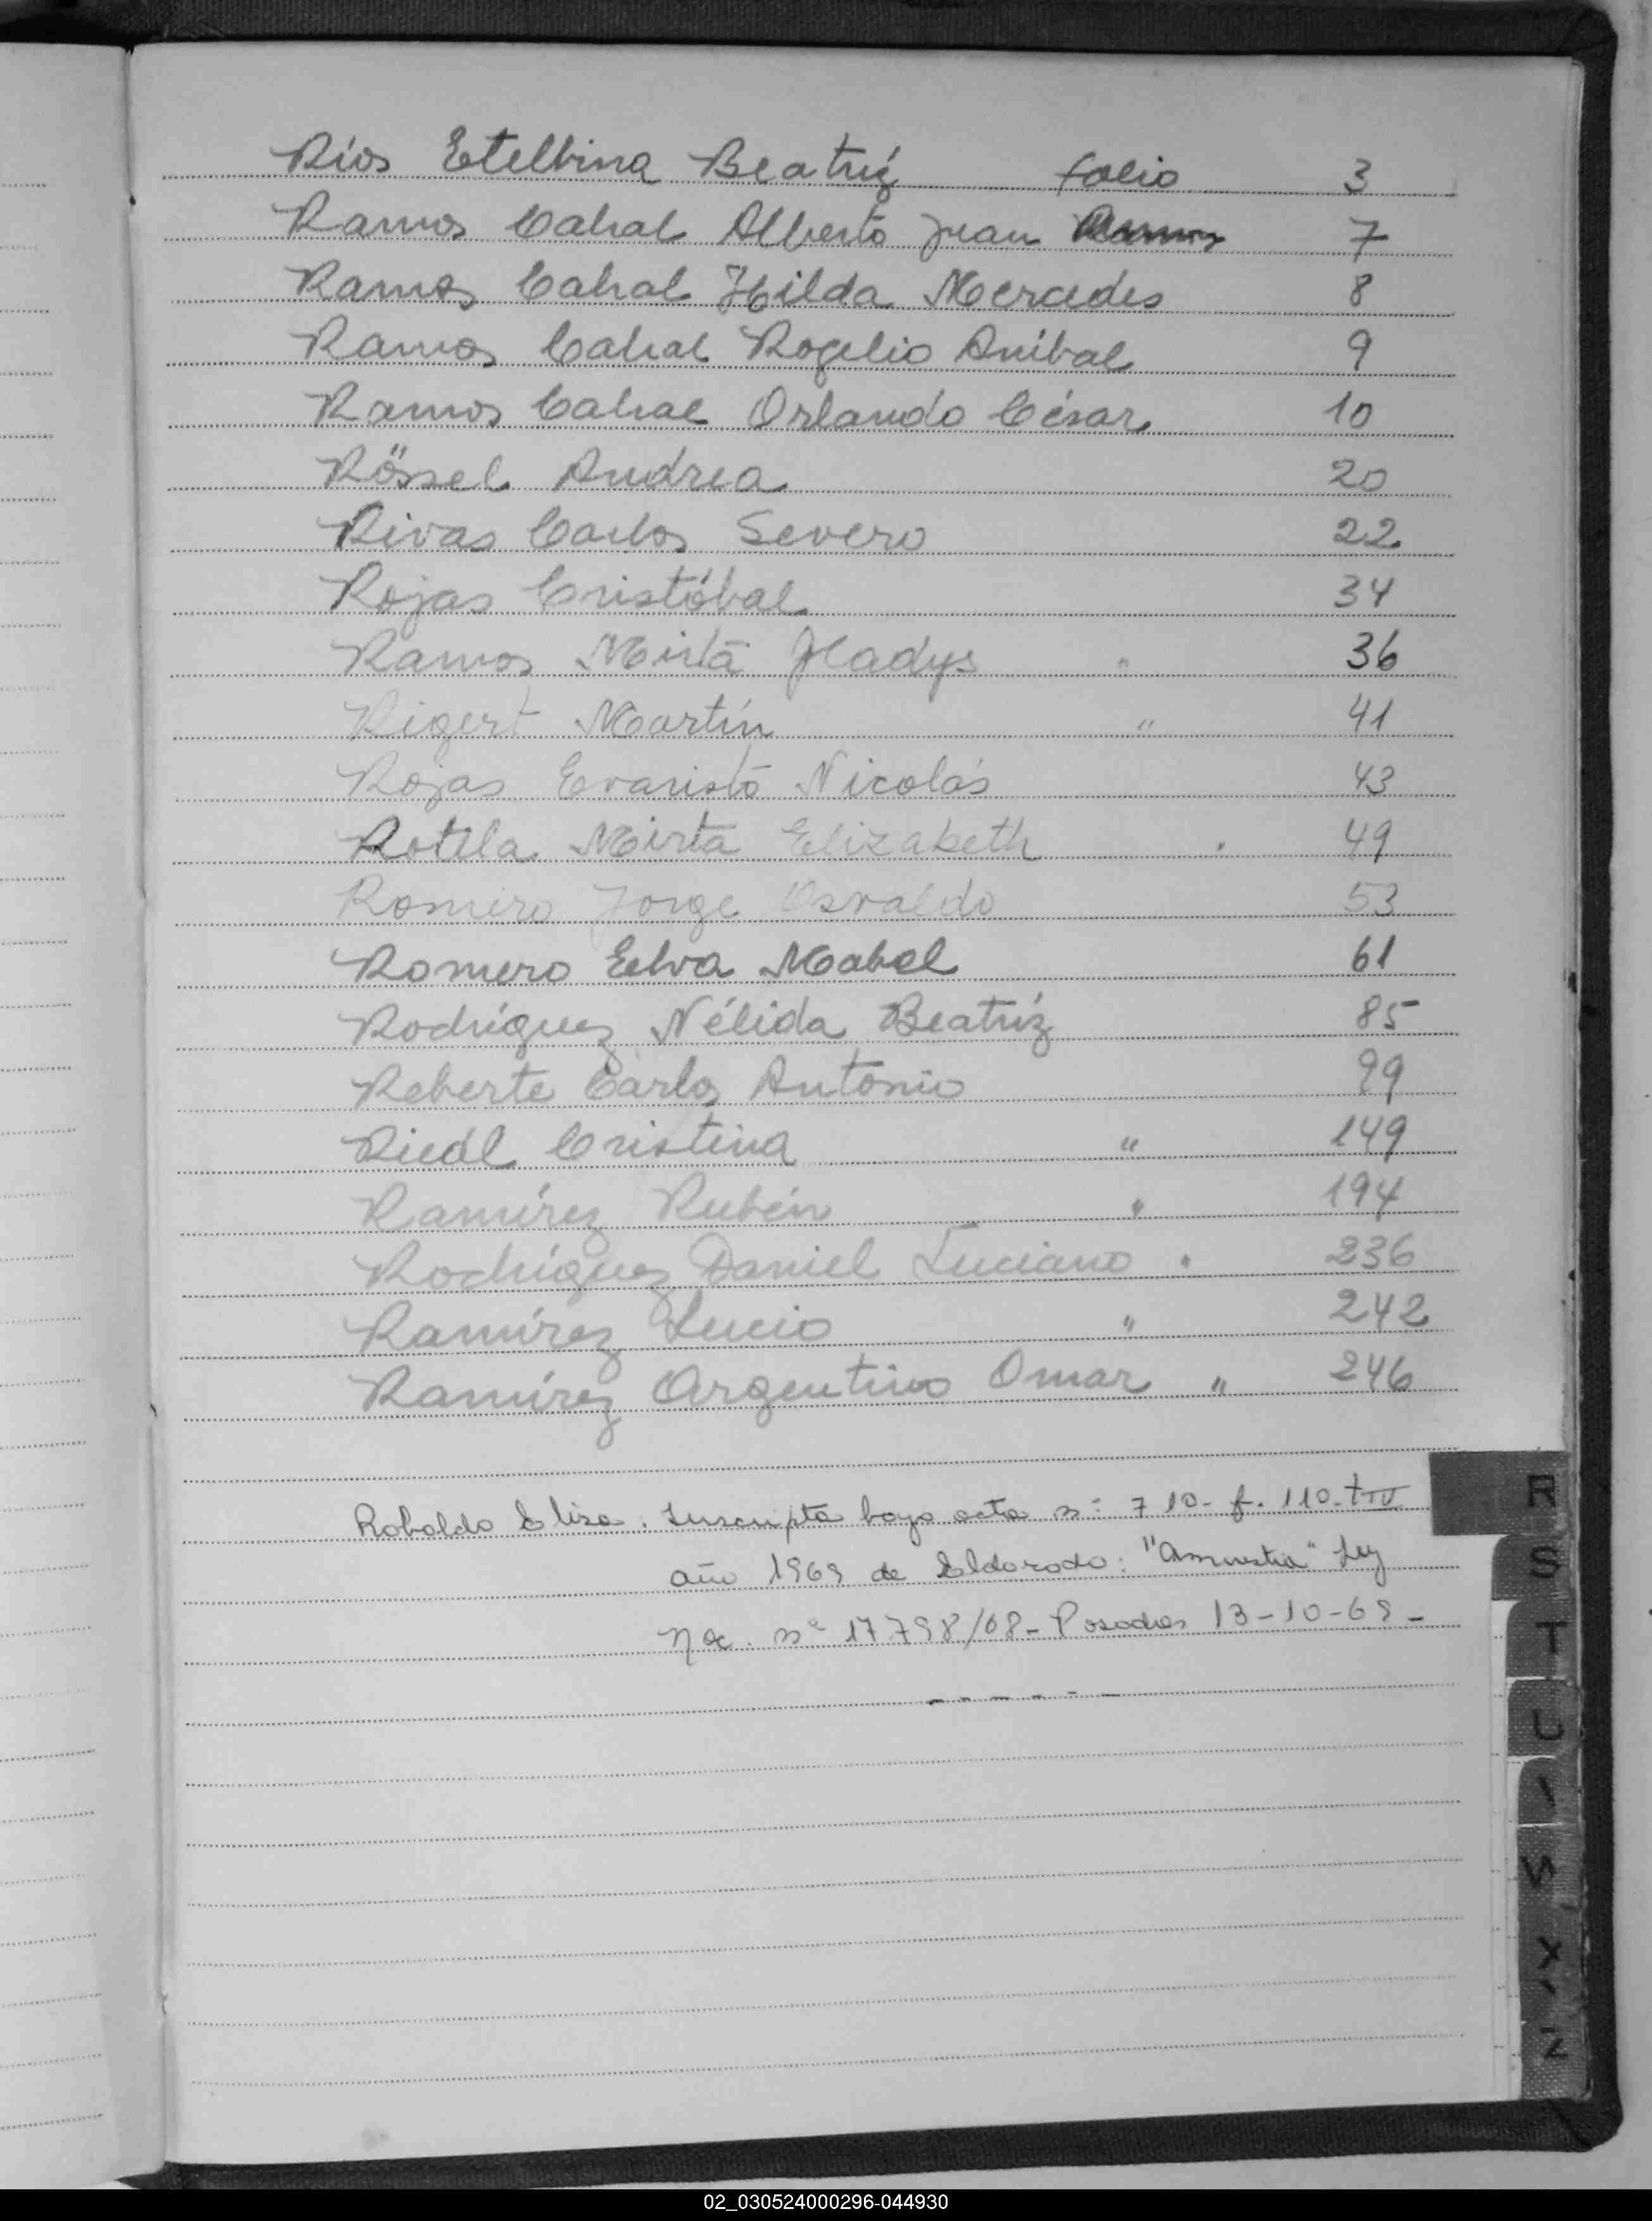 Ríos Etelbina Beatríz folio 3
Ramos Cabral Alberto Juan 7
Ramos Cabral Hilda Mercedes 8
Ramos Cabral Rogelio Anibal 9
Ramos Cabral Orlando César 10
Rössel Andrea 20
Rivas Carlos Severo 22
Rojas Cristóbal 34
Ramos Mirta Gladys " 36
Rigert Martín " 41
Rojas Evaristo Nicolás 43
Rotela Mirta Elizabeth " 49
Romero Jorge Osvaldo 53
Romero Elva Mabel 61
Rodríguez Nélida Beatríz 85
Reberte Carlos Antonio 99
Riedl Cristina " 149
Ramírez Rubén " 194
Rodríguez Daniel Luciano " 236
Ramírez Lucio " 242
Ramírez Argentino Omar " 246
Roboldo Elisa. Inscripta bajo acta nº 710- f. 110- t IV
R
año 1969 de Eldorado: "Amnistia" Ley
S
Nac. nº 17.798/68- Posadas 13-10-69-
T
U
W
X
Z
02_030524000296-044930